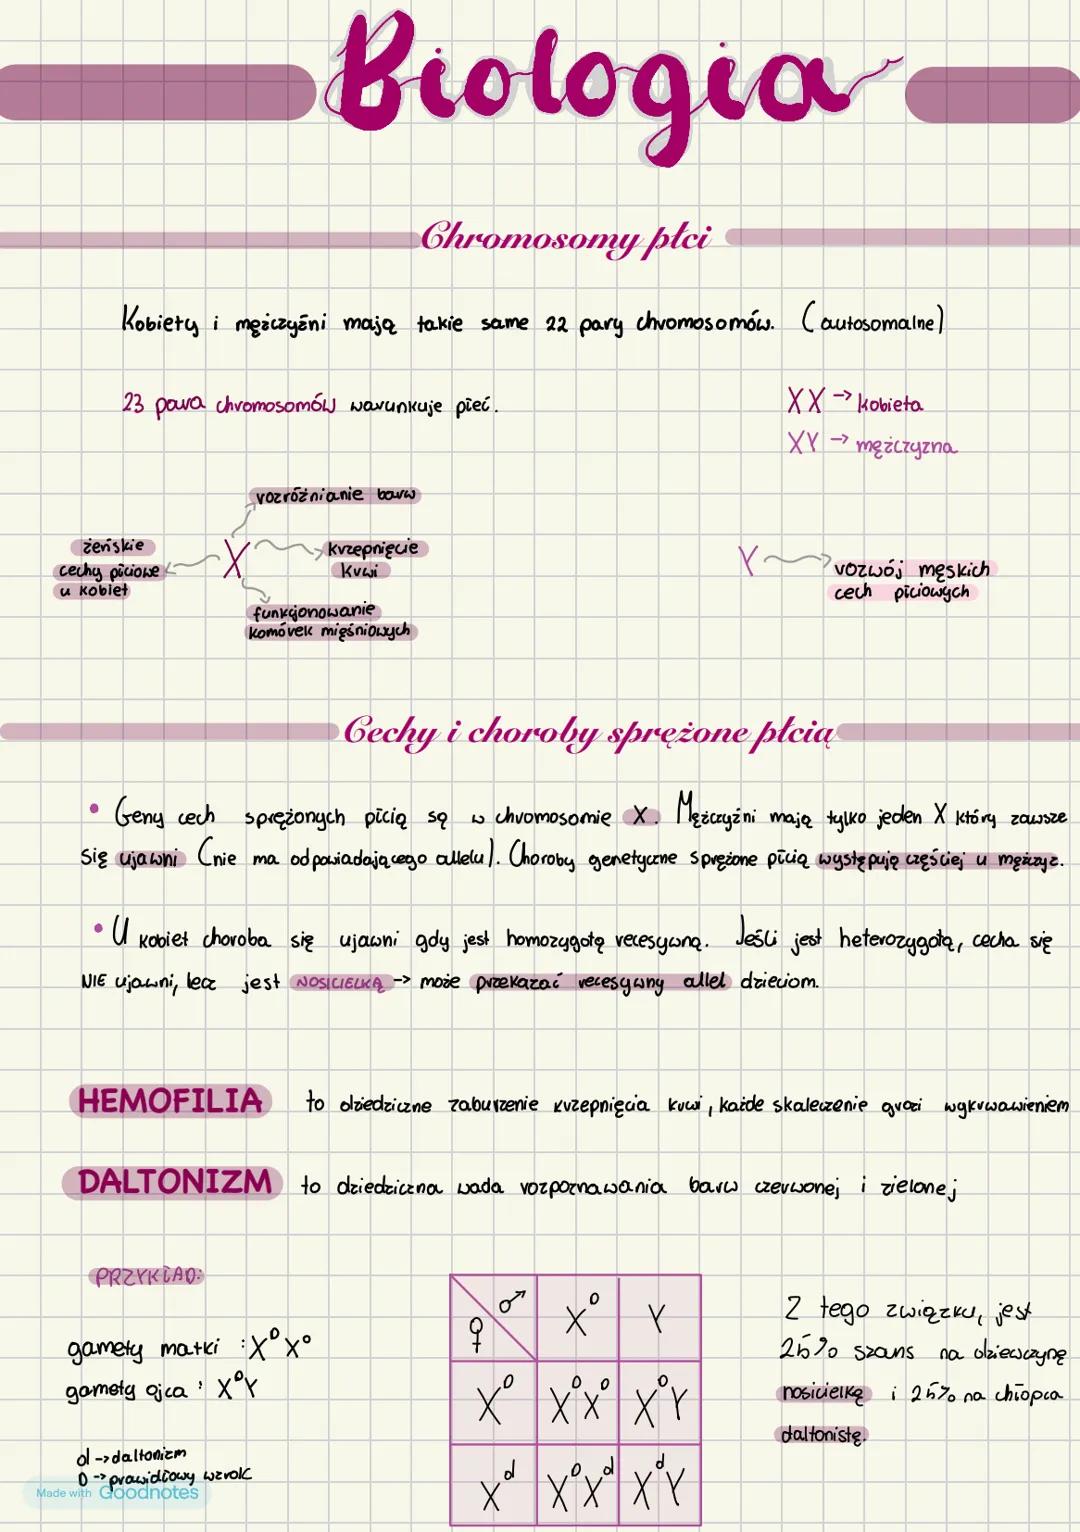 Biologia
Chromosomy płci
Kobiety i mężczyźni mają takie same 22 pary chromosomów. (autosomalne)
23 para chromosomów warunkuje płeć.
XX → kobieta
XY → mężczyzna
rozróżnianie barw
żeńskie
cechy płciowe
u kobiet
X
krzepnięcie
krwi
funkcjonowanie
komórek mięśniowych
Y
rozwój męskich
cech płciowych
Cechy i choroby sprężone płcią
• Geny cech sprężonych płcią są w chromosomie X. Mężczyźni mają tylko jeden X który zawsze
się ujawni (nie ma odpowiadającego allelu). Choroby genetyczne sprężone płcią występują częściej u mężczyz.
• U kobiet choroba się ujawni gdy jest homozygotą recesywną. Jeśli jest heterozygotą, cecha się
NIE ujawni, lecz jest NOSICIELKĄ -> może przekazać recesywny allel dzieciom.
HEMOFILIA to dziedziczne zaburzenie krzepnięcia krwi, każde skaleczenie grozi wykrwawieniem
DALTONIZM to dziedziczna wada rozpoznawania barw czerwonej i zielonej
PRZYKŁAD:
gamety matki : X^D X^o
gamety ojca : X^D Y
d -> daltonizm
D -> prawidłowy wzrok
Made with Goodnotes
♀ ♂ X^D Y
X^D X^D X^D X^D Y
X^d X^D X^d X^d Y
Z tego związku, jest
25% szans na dziewczynę
nosicielkę i 25% na chłopca
daltonistę.